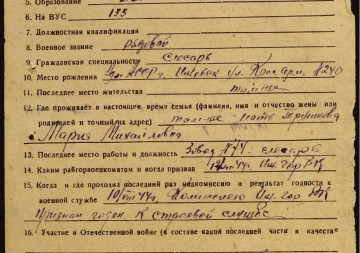 5. Образование
6. На ВУС 133
7. Должностная квалификация
8. Военное звание рядовой
9. Гражданская специальность слесарь
10. Место рождения Ум.АССР г. Ижевск ул. Кр. Арм. №240
11. Последнее место жительства там же
12. Где проживает в настоящее время семья (фамилия, имя и отчество жены или
родителей и точный их адрес) там-же мать
Мария Михайловна
13. Последнее место работы и должность Завод №74 слесарь
14. Каким райгорвоенкоматом и когда призван 12/VIII 44г. Иж. гор ВК
15. Когда и где проходил последний раз медкомиссию и результат годности к
военной службе 10/VIII 44г. Комиссией Иж. гор ВК
Признан годен к строевой службе
16. Участие в Отечественной войне (в составе какой последней части в качестве